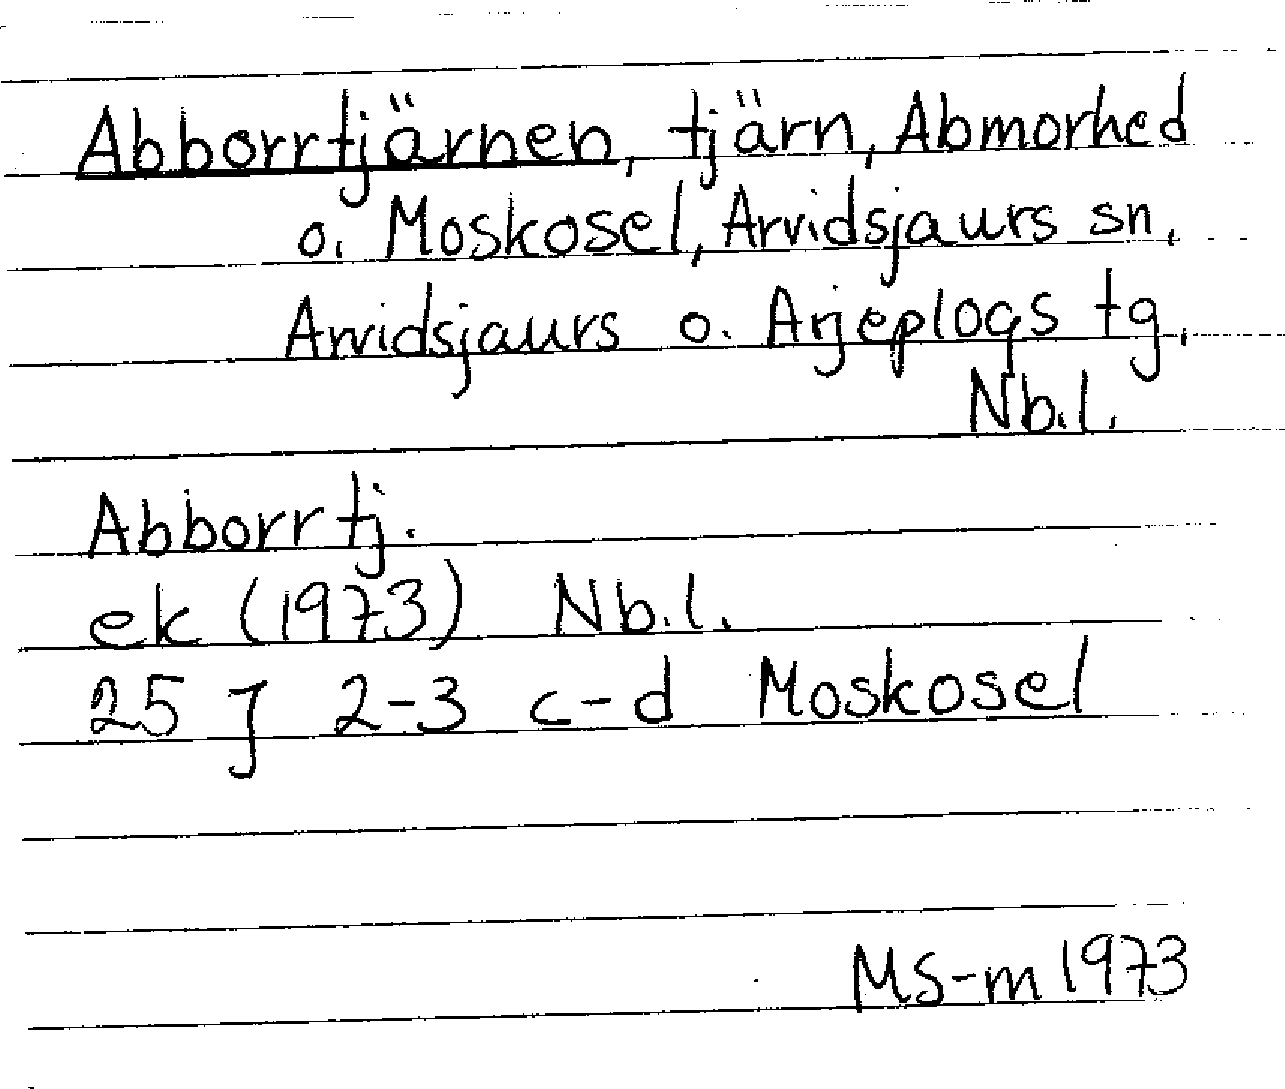 Abborrtjärnen, tjärn, Abmorhed
o. Moskosel, Arvidsjaurs sn,
Arvidsjaurs o. Arjeplogs tg,
Nb.l.
Abborrtj.
ek (1973) Nb.l.
25 J 2-3 c-d Moskosel
MS-m 1973